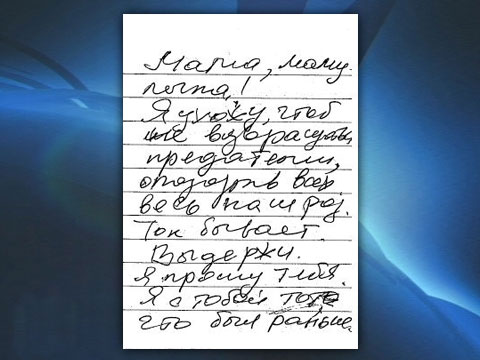 Мama, мому
почка!
Я ухожу, чтоб
не возвращаться
предателем,
опозорть всех
весь наш род.
Так бывает.
Выдержи.
Я прошу тебя.
Я с тобой тот
что был раньше.